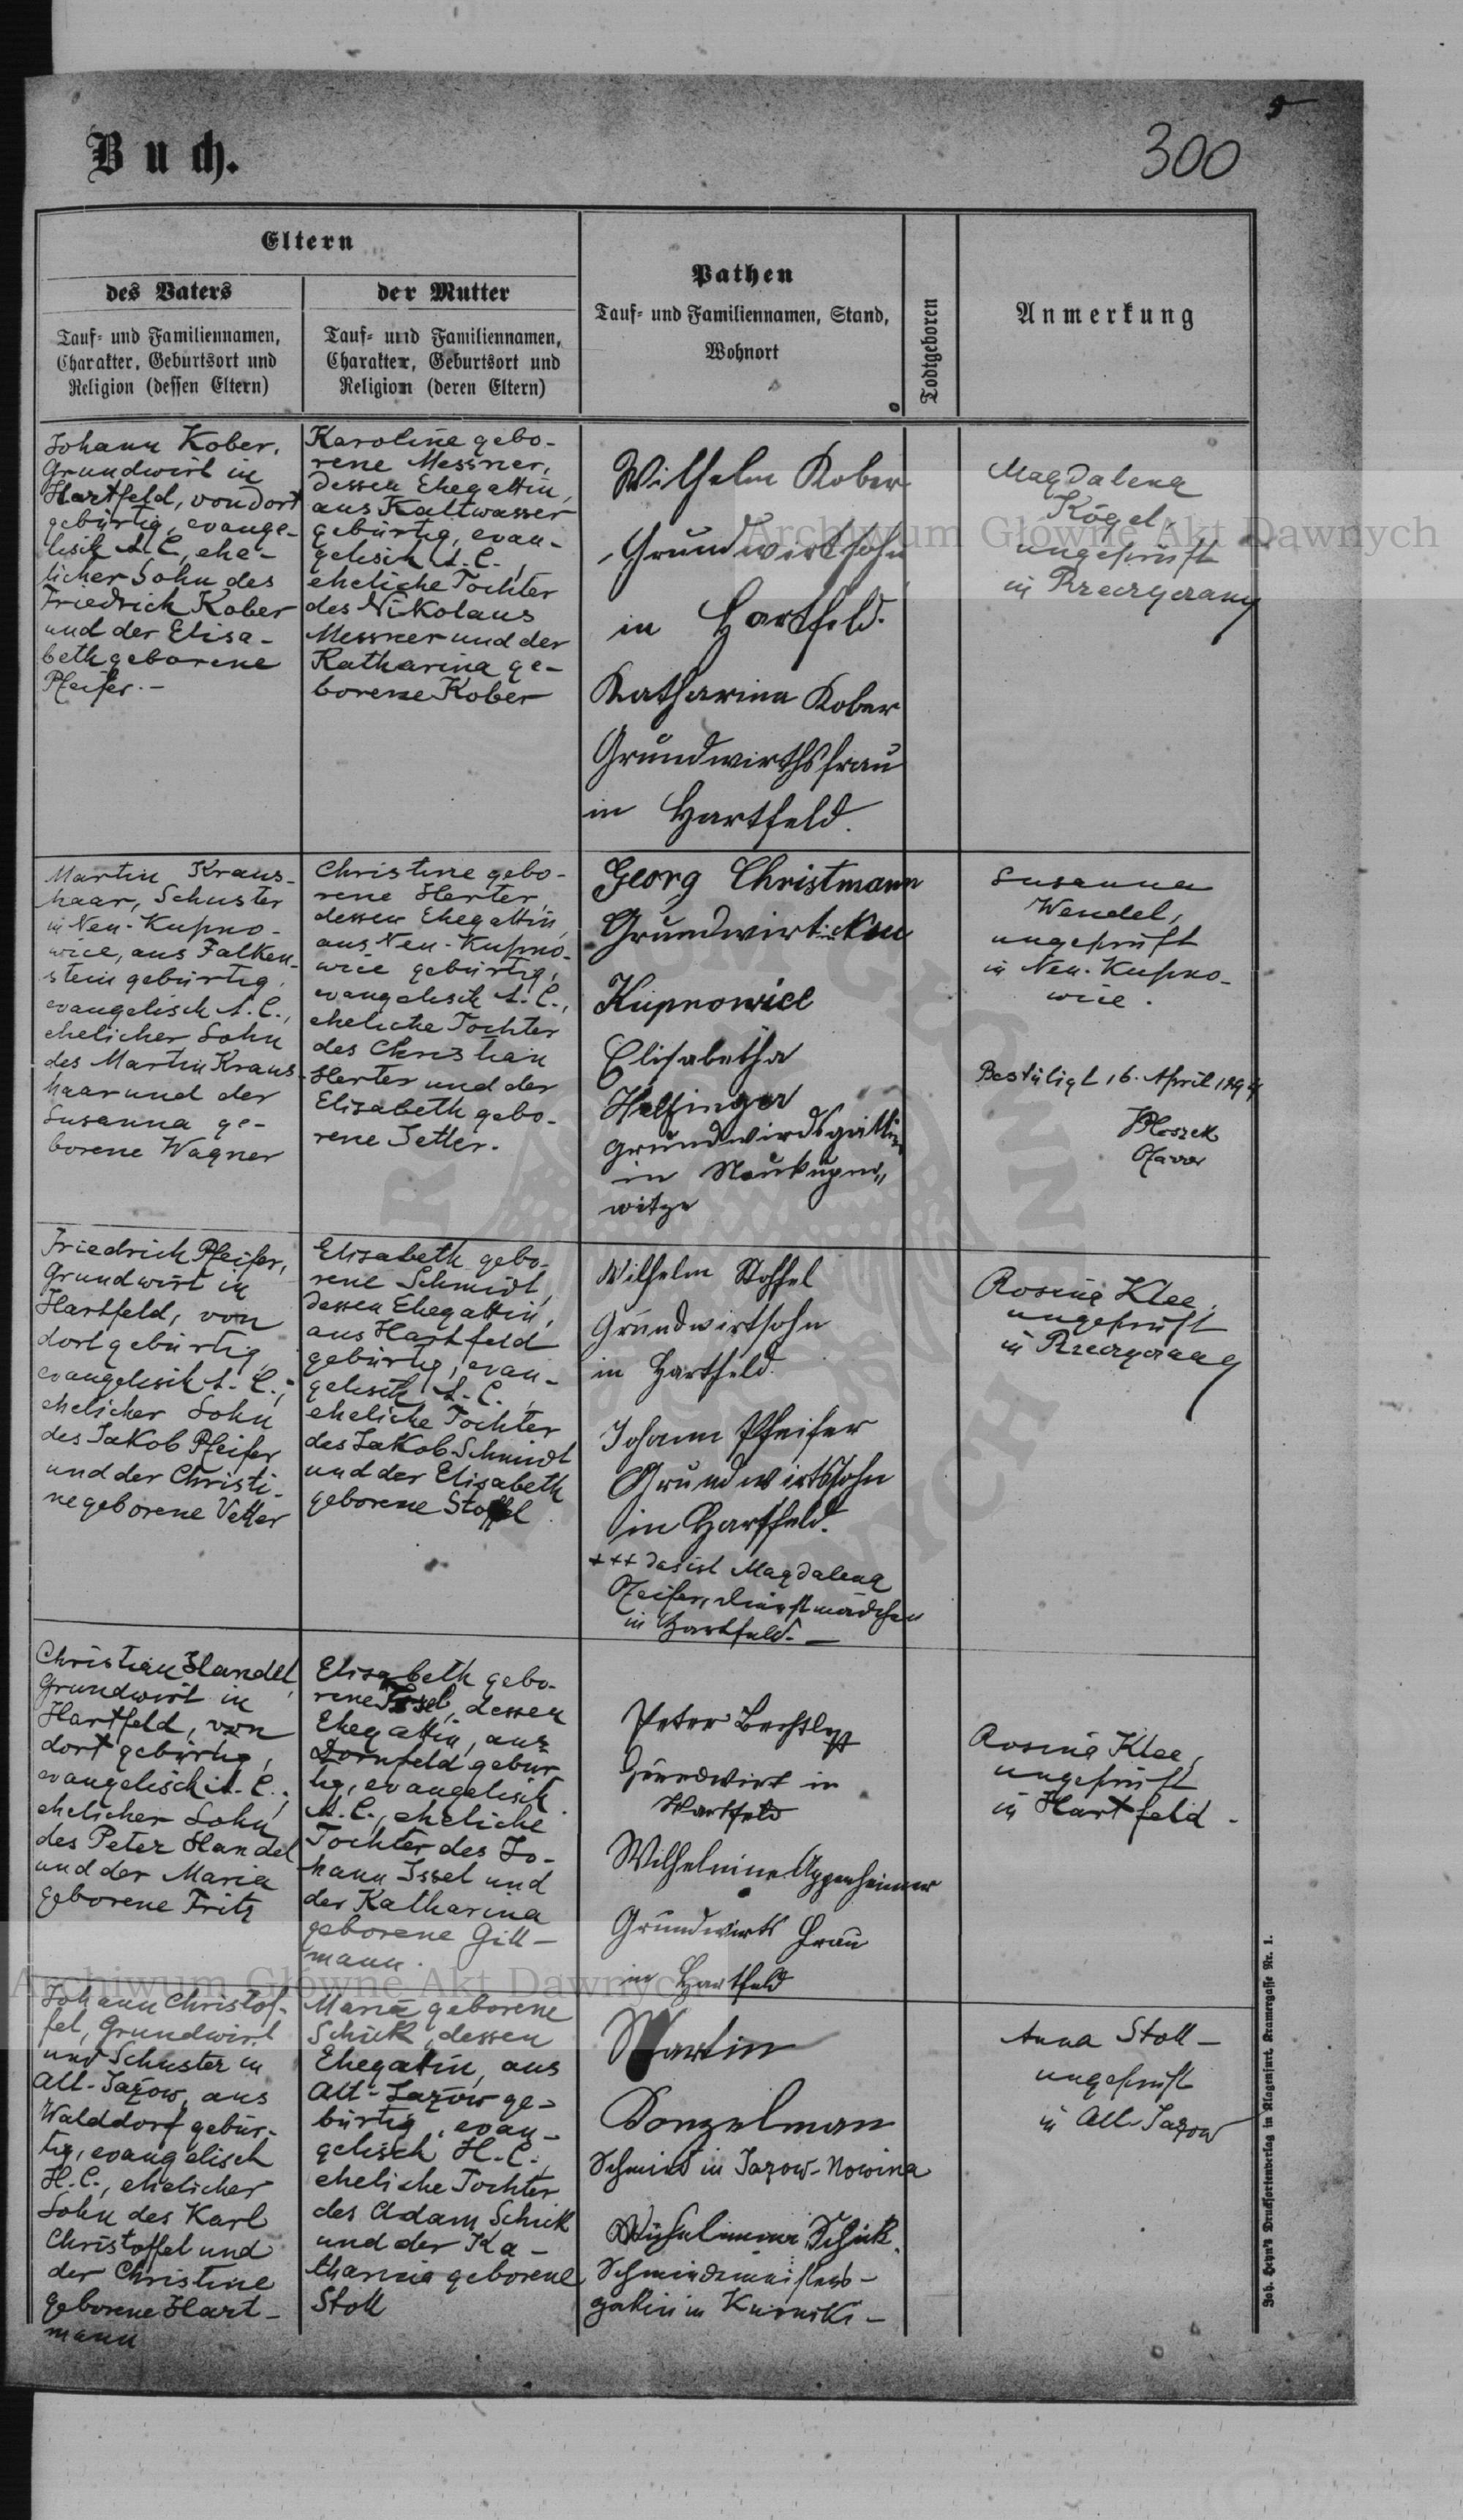 5
300
Buch.
Eltern
des Vaters
Tauf- und Familiennamen,
Charakter, Geburtsort und
Religion (dessen Eltern)
der Mutter
Tauf- und Familiennamen,
Charakter, Geburtsort und
Religion (deren Eltern)
Pathen
Tauf- und Familiennamen, Stand,
Wohnort
Todtgeboren
Anmerkung
Johann Kober,
Grundwirt in
Hartfeld, von dort
gebürtig, evange-
lisch A. C., ehe-
licher Sohn des
Friedrich Kober
und der Elisa-
beth geborene
Pfeifer.-
Karoline gebo-
rene Messner,
dessen Ehegattin,
aus Kaltwasser
gebürtig, evan-
gelisch A. C.,
eheliche Tochter
des Nikolaus
Messner und der
Katharina ge-
borene Kober
Wilhelm Kober
Grundwirtsohn
in Hartfeld.
Katharina Kober
Grundwirthsfrau
in Hartfeld.
Magdalena
Kögel,
ungeprüft
in
Martin Kraus-
haar, Schuster
in Neu-Kupno-
wice, aus Falken-
stein gebürtig,
evangelisch A. C.,
ehelicher Sohn
des Martin Kraus-
haar und der
Susanna ge-
borene Wagner
Christine gebo-
rene Herter,
dessen Ehegattin,
aus Neu-Kupno-
wice gebürtig,
evangelisch A. C.,
eheliche Tochter
des Christian
Herter und der
Elisabeth gebo-
rene Jetter.
Georg Christmann
Grundwirt in Neu
Kupnowice
Elisabetha
Helfinger
Grundwirdsgattin
in Neukupno„
witze
Susanna
Wendel,
ungeprüft
in Neu-Kupno-
wice.
Bestätigt 16. April 1894
Pfarrer
Friedrich Pfeifer,
Grundwirt in
Hartfeld, von
dort gebürtig,
evangelisch A. C.,
ehelicher Sohn
des Jakob Pfeifer
und der Christi-
ne geborene Vetter
Elisabeth gebo-
rene Schmidt,
dessen Ehegattin,
aus Hartfeld
gebürtig, evan-
gelisch A. C.,
eheliche Tochter
des Jakob Schmidt
und der Elisabeth
geborene Stoffel
Wilhelm Stoffel
Grundwirtsohn
in Hartfeld.
Johann Pfeifer
Grundwirtssohn
in Hartfeld.
+++ das ist Magdalena
Pfeifer, Dienstmädchen
in Hartfeld.-
Rosina Klee,
ungeprüft
in
Christian Handel,
Grundwirt in
Hartfeld, von
dort gebürtig,
evangelisch A. C.,
ehelicher Sohn
des Peter Handel
und der Maria
geborene Fritz
Elisabeth gebo-
rene Issel, dessen
Ehegattin, aus
Dornfeld gebür-
tig, evangelisch
A. C., eheliche
Tochter des Jo-
hann Issel und
der Katharina
geborene Gill-
mann.
Peter
Grundwirt in
Hartfeld
Wilhelmine Oppenheimer
Grundwirts Frau
in Hartfeld
Rosina Klee,
ungeprüft
in Hartfeld.
Johann Christof-
fel, Grundwirt
und Schuster in
Alt-Jazow, aus
Walddorf gebür-
tig, evangelisch
H. C., ehelicher
Sohn des Karl
Christoffel und
der Christine
geborene Hart-
mann
Maria geborene
Schick, dessen
Ehegattin, aus
Alt-Jazow ge-
bürtig, evan-
gelisch H. C.,
eheliche Tochter
des Adam Schick
und der Ka-
tharina geborene
Stoll
Martin
Konzelman
Schmied in Jazow-Nowina
Schick,
Schmiedemeisters-
gattin in Kurniki-
Anna Stoll-
ungeprüft
in Alt-Jazow
Joh. Heyn's Drucksortenverlag in Klagenfurt, Kramergasse Nr. 1.
Archiwum Główne Akt Dawnych
Archiwum Główne Akt Dawnych